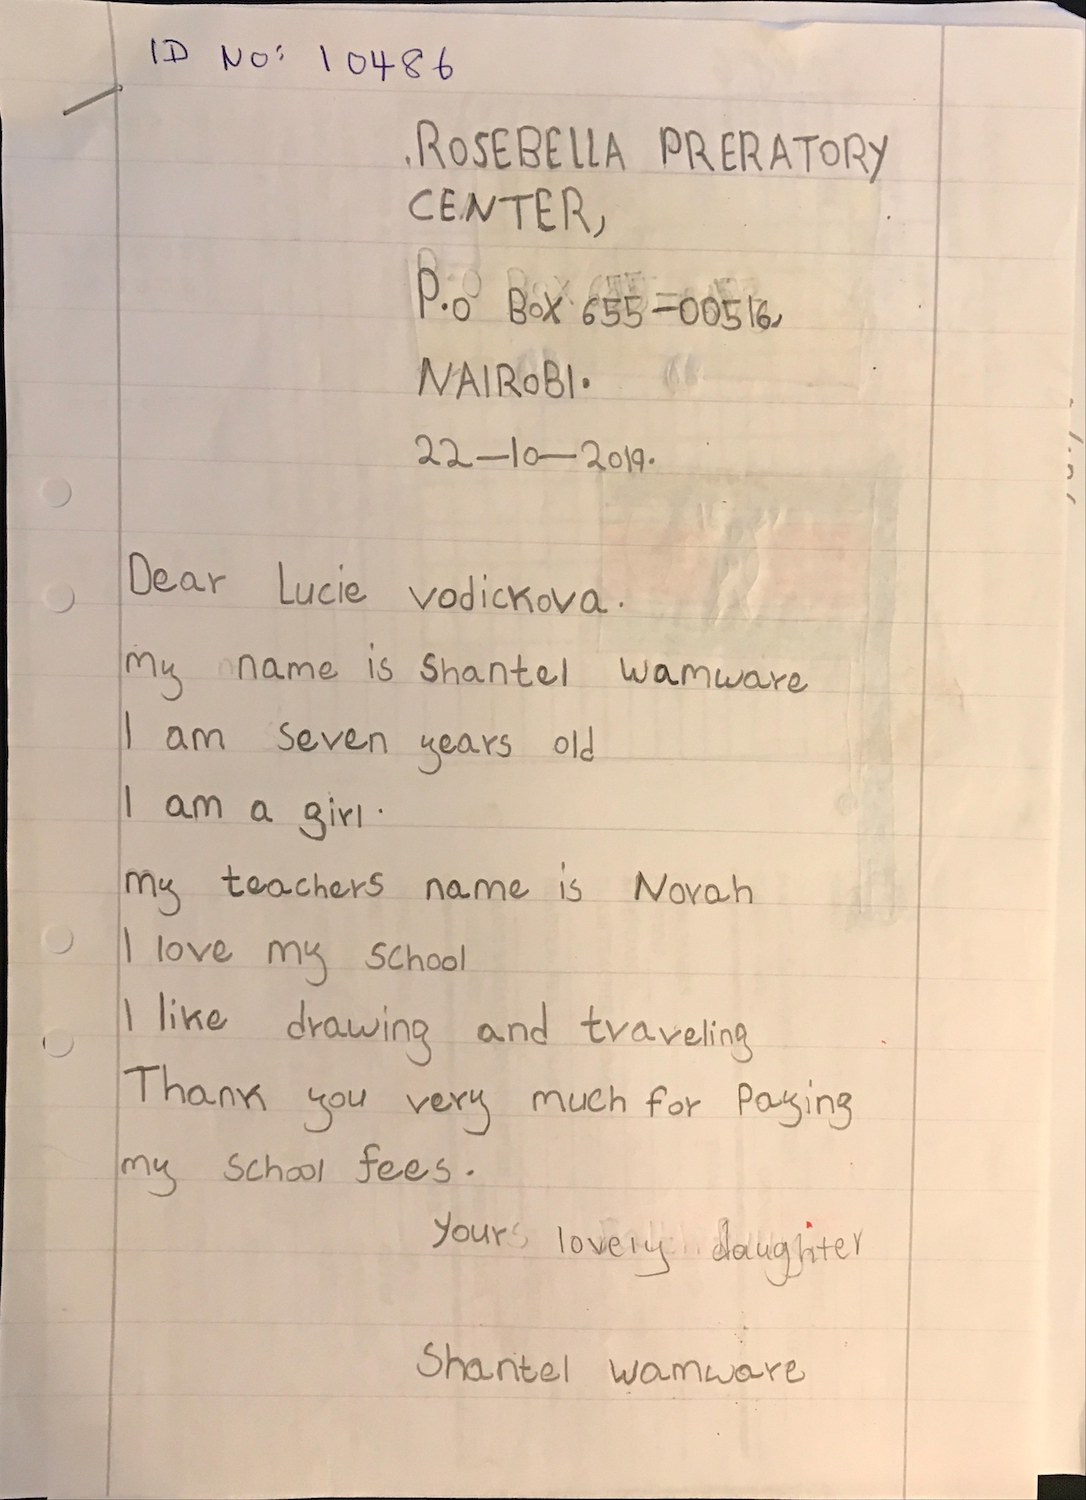 ID No: 10486
.ROSEBELLA PRERATORY
CENTER,
P.o Box 655=00516,
NAIROBI.
22-10-2019.
Dear Lucie vodickova.
my name is Shantel wamware
I am seven years old
I am a girl.
my teachers name is Norah
I love my school
I like drawing and traveling
Thank you very much for Paying
my school fees.
yours lovely daughter
Shantel wamware